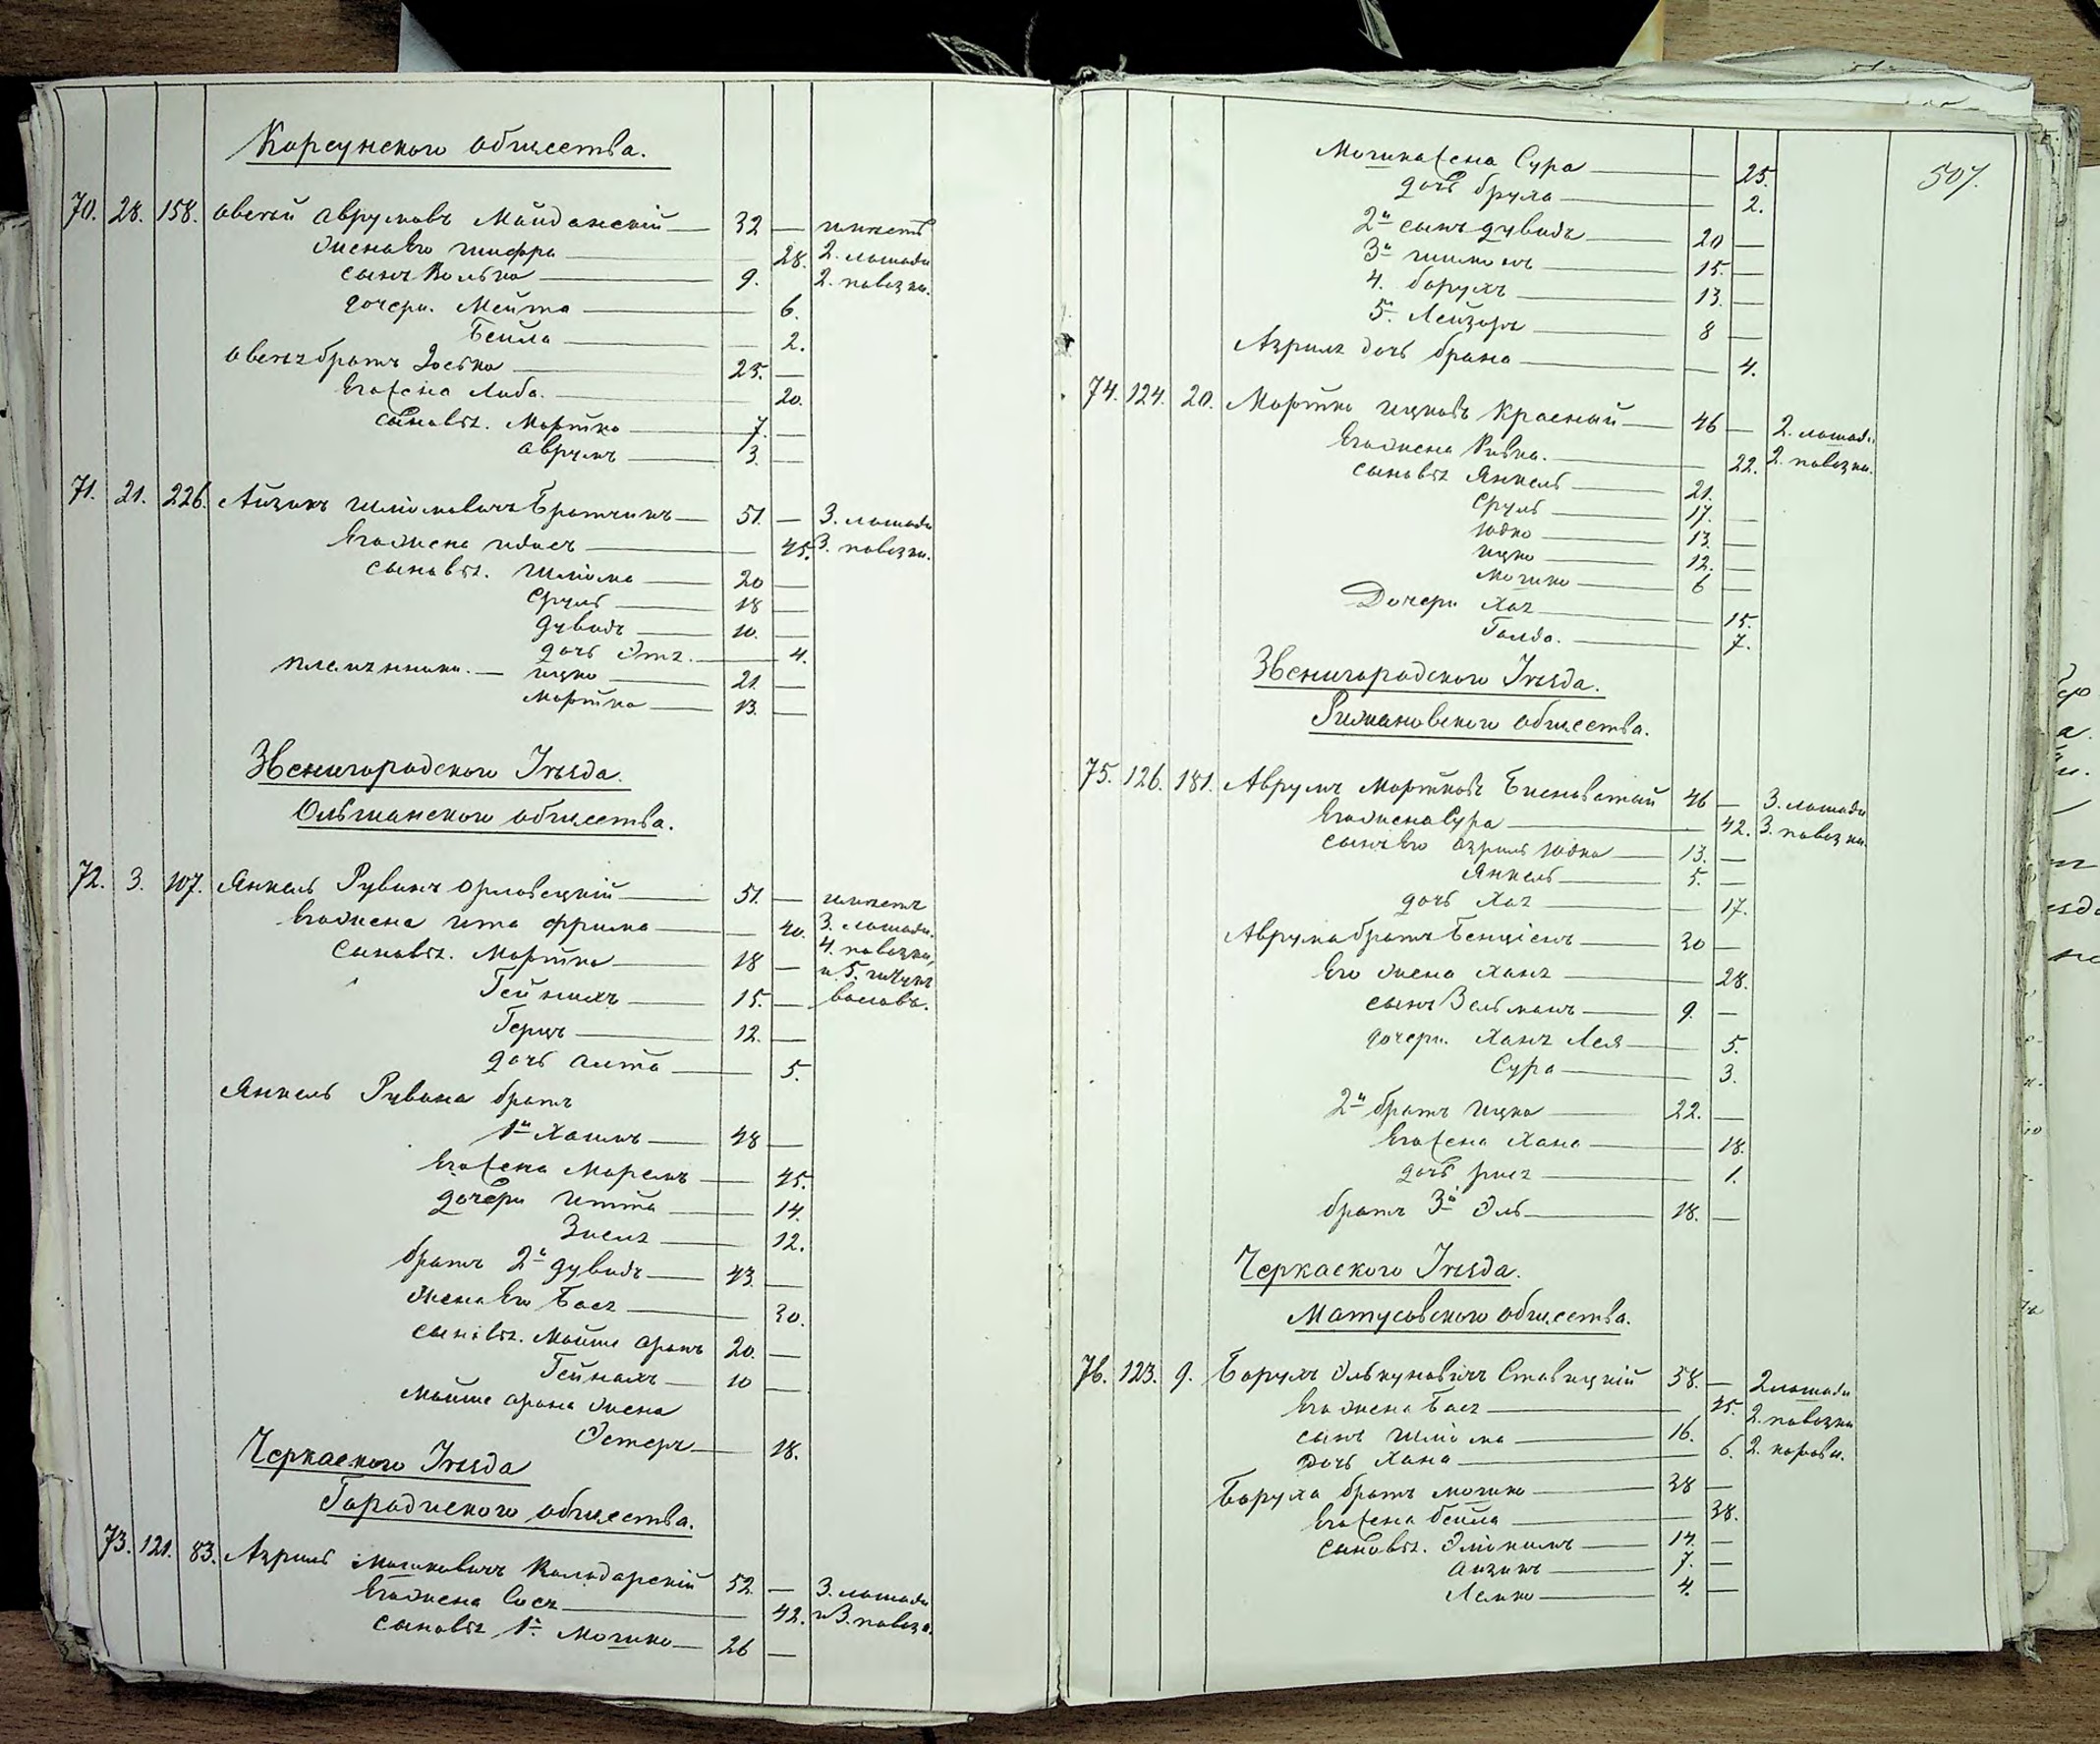 Корсунского общества.
70. 28. 158. Овсей Аврумовъ Майданскій — 32 — имеетъ
жена Его Шифра — 28. 2. лошади
сынъ Волько — 9. 2. повозки.
дочери. Мейта — 6.
Бейла — 2.
Овсея братъ Іоська — 25. —
Его жена Либа. — 20.
сыновья. Мортко — 7. —
Аврумъ — 3. —
71. 21. 226. Айзикъ Шліомовичъ Братчикъ — 51. — 3. лошади
Его жена — 45. 3. повозки.
сыновья. Шліома — 20 —
Сруль — 18 —
Дувидъ — 10. —
дочь Этя. — 4.
племянники. — Ицко — 21. —
Мортко — 13. —
Звенигородского Уѣзда.
Ольшанского общества.
72. 3. 107. Янкель Рувинъ Орловецкій — 51. — имеетъ
Его жена Ита Фрима — 40. 3. лошади.
сыновья. Мортко — 18 — 4. повозки,
и 5. штукъ
Гейнихъ — 15. — воловъ.
Герцъ — 12. —
дочь — 5.
Янкель Рувина братъ
1й Хаимъ — 48 —
Его жена — 45.
дочери Итта — 14.
Зися — 12.
братъ 2й Дувидъ — 43. —
жена Его Бася — 30.
сыновья. Мойше Аронъ 20. —
Гейнахъ — 10 —
Мойше Арона жена
Эстеръ — 18.
Черкаского Уѣзда
Городиского общества.
73. 121. 83. Азриль Мошковичъ Кальдарскій 52. — 3. лошади
Его жена Сося — 42. и 3. повозк.
сыновья 1й Мошко — 26 —
507.
Мошка жена Сура — 25.
дочь Бруха — 2.
2й сынъ Дувидъ — 20 —
3й Шимонъ — 15. —
4. Борухъ — 13. —
5й Лейзоръ — 8 —
Азриля дочь Брана — 4.
74. 124. 20. Мортко Ицковъ Красный — 46 — 2. лошади
Его жена Ривка. — 22. 2. повозки.
сыновья Янкель — 21.
Сруль — 17. —
Юдко — 13. —
Ицко — 12. —
Мошко — 6 —
Дочери Хая — 15.
Голда. — 7.
Звенигородского Уѣзда.
Рижановского общества.
75. 126. 181. Аврумъ Мортковъ 46 — 3. лошади
Его жена Сура — 42. 3. повозки.
сынъ Его Азриль Юдко — 13. —
Янкель — 5. —
дочь Хая — 17.
Аврума братъ Бенціенъ — 30 —
Его жена Ханя — 28.
сынъ Зельманъ — 9. —
дочери. Ханя Лея — 5.
Сура — 3.
2й братъ Ицко — 22. —
Его жена Хана — 18.
дочь — 1.
братъ 3й Эль — 18. —
Черкаского Уѣзда.
Матусовского общества.
76. 123. 9. Борухъ Элькуновичъ Ставицкій 58. — 2 лошади
Его жена Бася — 45. 2. повозки
сынъ Шліома — 16.
дочь Хана — 6. 2. коровы.
Боруха братъ Мошко — 38 —
Его жена Бейла — 38.
сыновья. Эліокимъ — 14. —
Айзикъ — 7. —
Лейко — 4. —